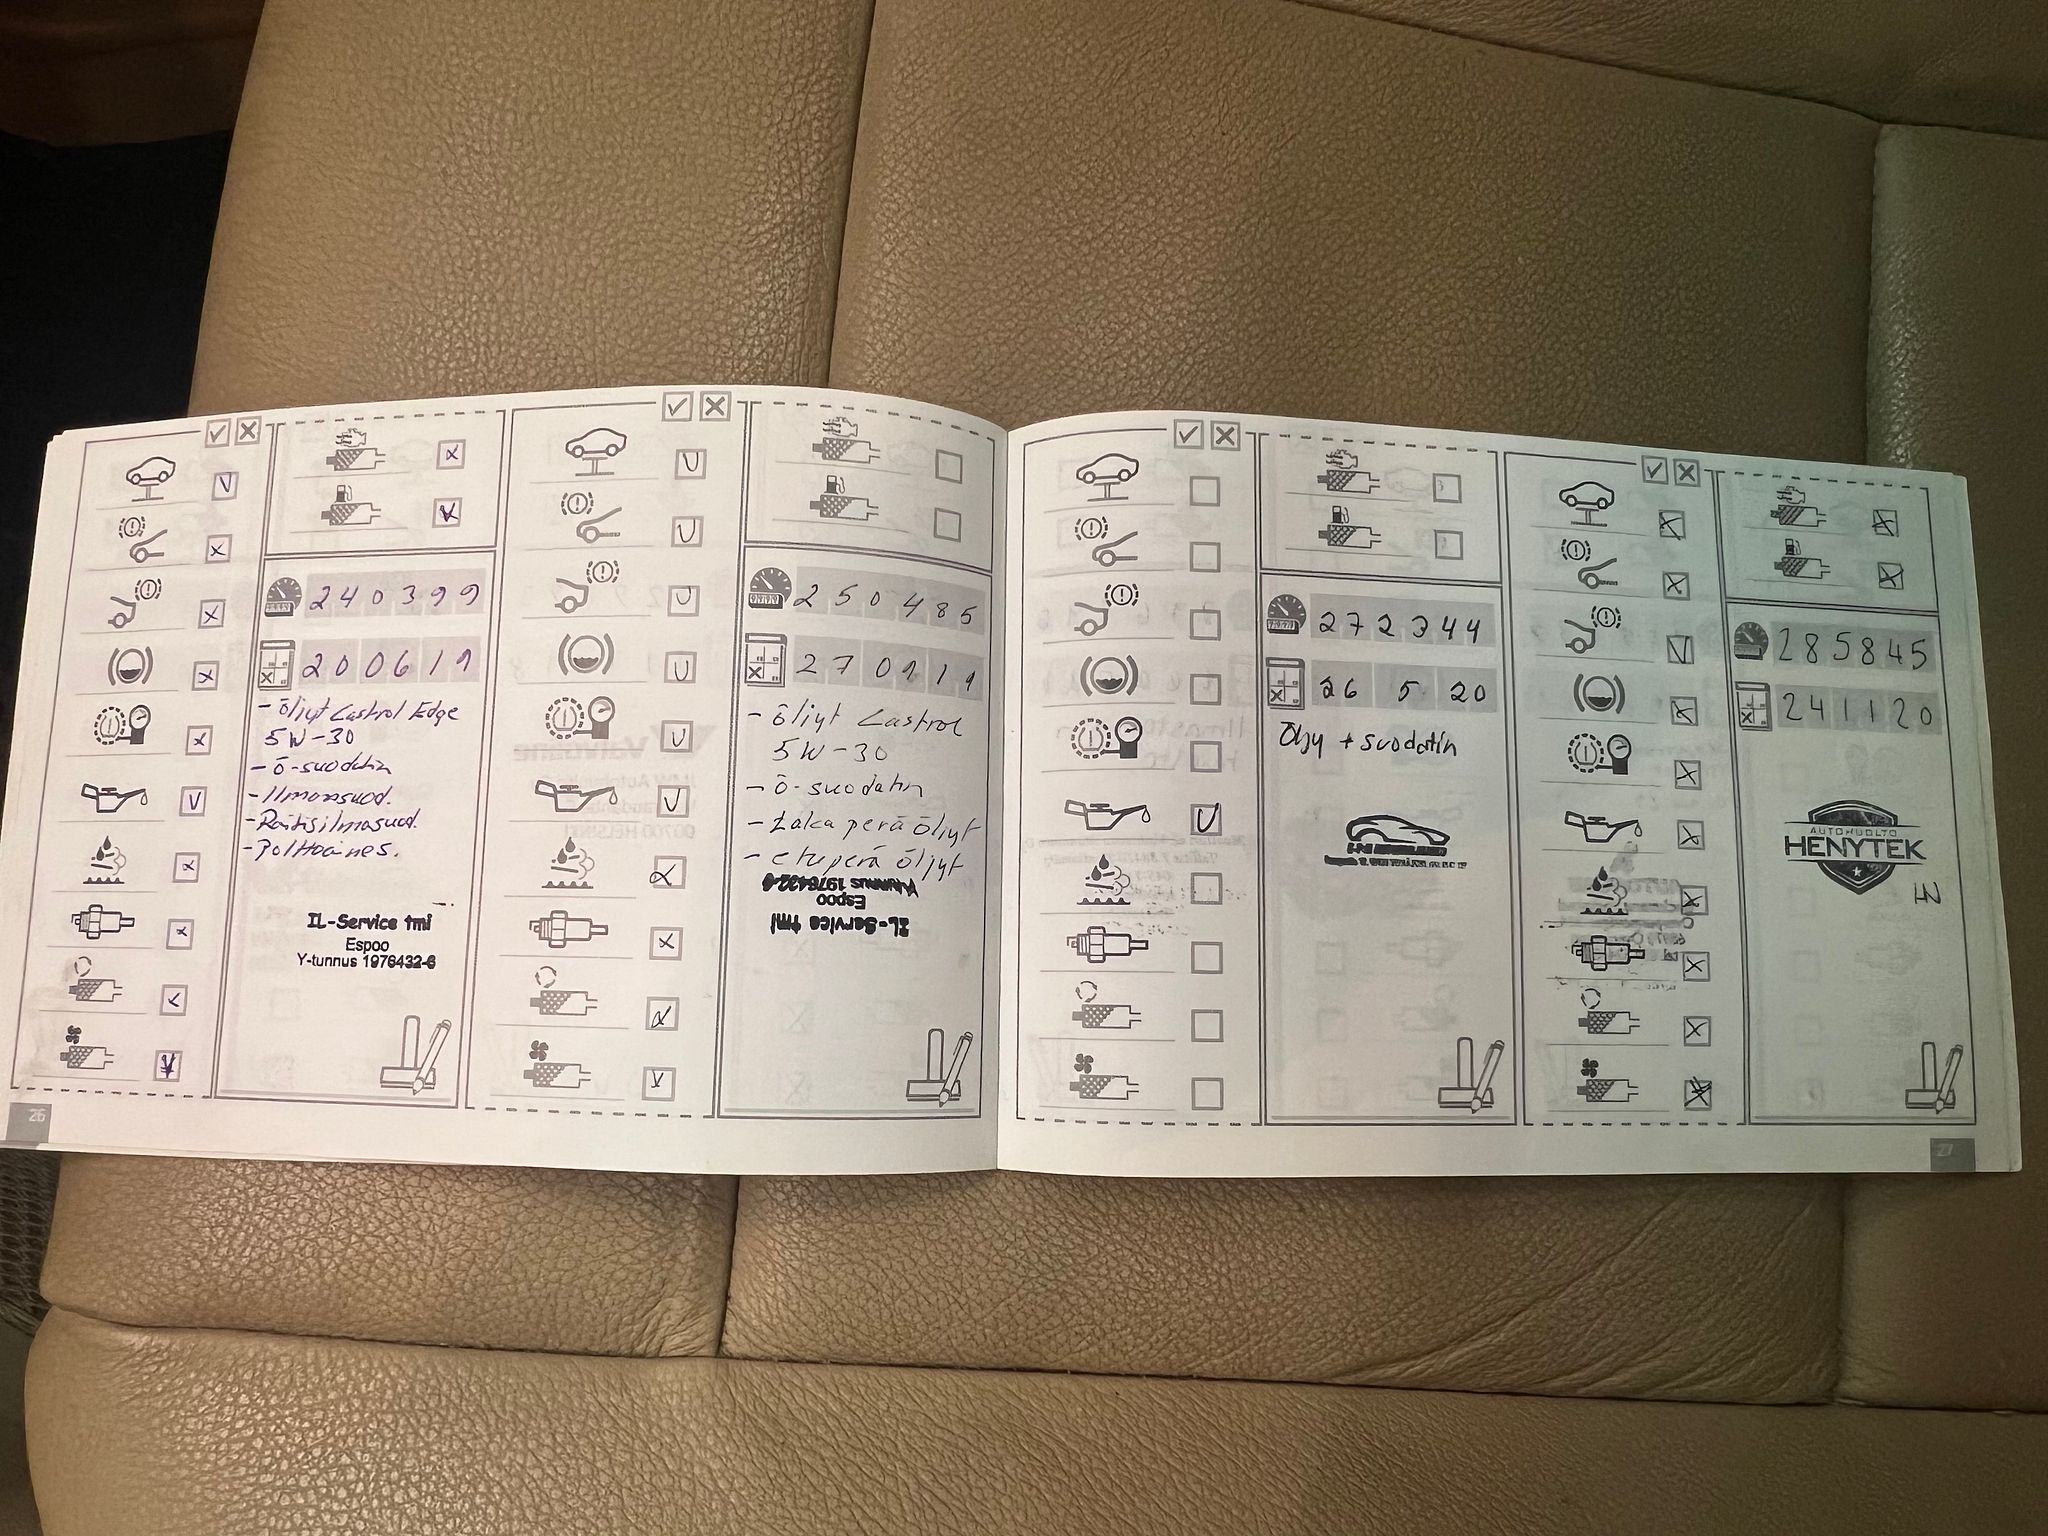 240399
200619
- öljyt Castrol Edge
5W-30
- ö-suodatin
- Ilmansuod.
- Raitisilmasuod.
- polttoaines.
IL-Service tmi
Espoo
Y-tunnus 1976432-6
26
250485
270919
- öljyt Castrol
5W-30
- ö-suodatin
- taka perä öljyt
- etuperä öljyt
Y-tunnus 1976432-6
Espoo
IL-Service tmi
272344
26 5 20
Öljy + suodatin
285845
241120
AUTOHUOLTO
HENYTEK
27